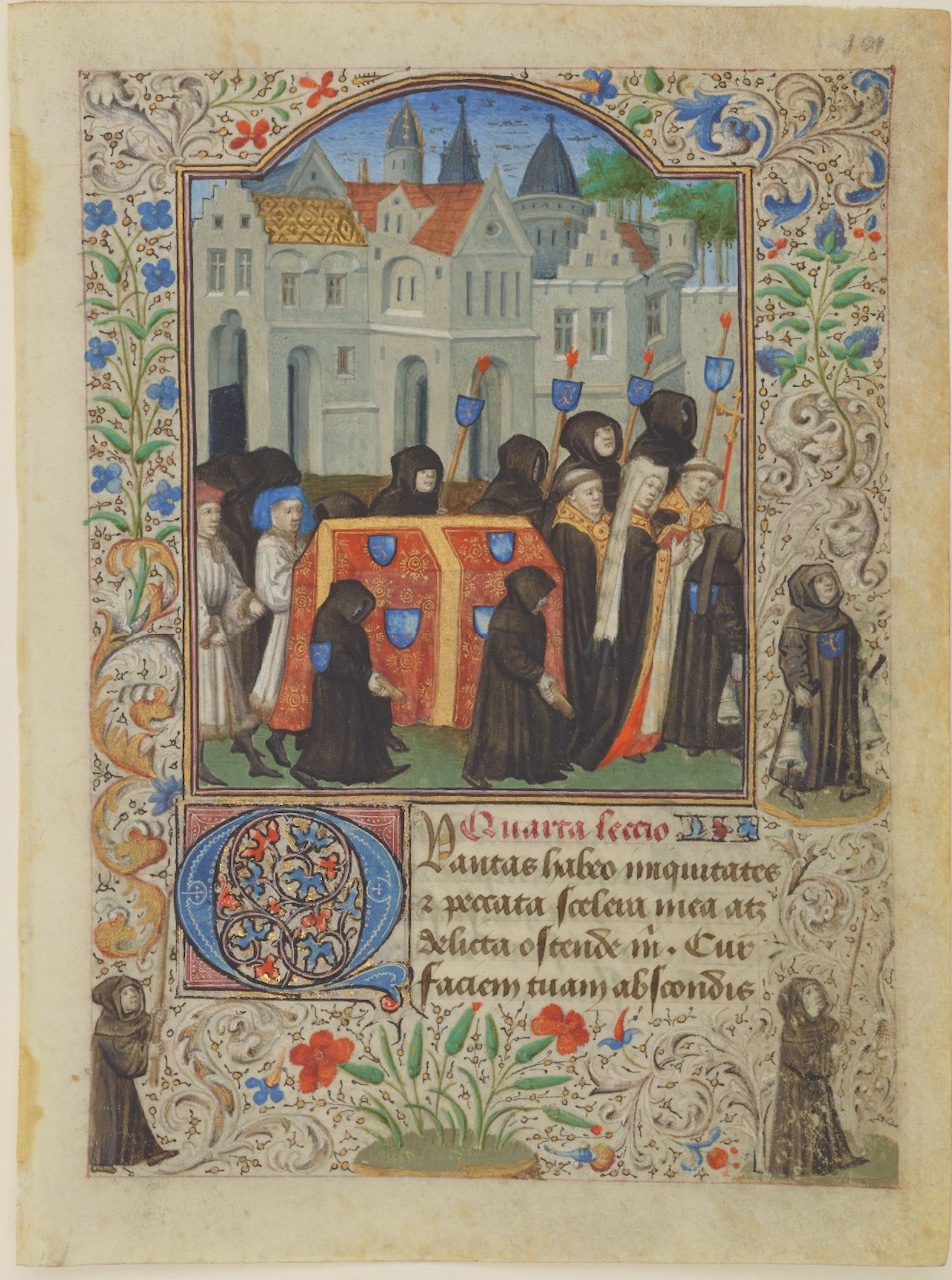 Quarta leccio
Quantas habeo iniquitates
⁊ peccata scelera mea atꝫ
delicta ostende m̄. Cur
faciem tuam abscondis